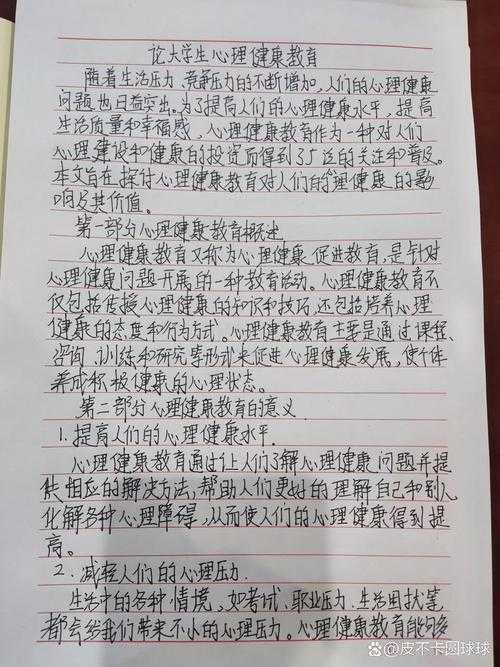 论大学生心理健康教育
随着生活压力、竞争压力的不断增加,人们的心理健康
问题也日益突出。为了提高人们的心理健康水平,提高
生活质量和幸福感,心理健康教育作为一种对人们
心理建设和健康的投资而得到了广泛的关注和普及。
本文旨在探讨心理健康教育对人们的心理健康的影
响与其价值。
第一部分心理健康教育概述
心理健康教育又称为心理健康促进教育,是针对
心理健康问题开展的一种教育活动。心理健康教育不
仅包括传授心理健康的知识和技巧,还包括培养心理
健康的态度和行为方式。心理健康教育主要是通过课程、
咨询、训练和研究等形式来促进心理健康发展,使个体
养成积极健康的心理状态。
第二部分心理健康教育的意义
1.提高人们的心理健康水平.
心理健康教育通过让人们了解心理健康问题并提
供相应的解决方法,帮助人们更好的理解自己和别人
化解各种心理障碍,从而使人们的心理健康得到提
高。
2.减轻人们的心理压力.
生活中的各种情境,如考试、职业压力、生活困扰等
都会给我们带来不小的心理压力。心理健康教育能够
皮不卡圆球球